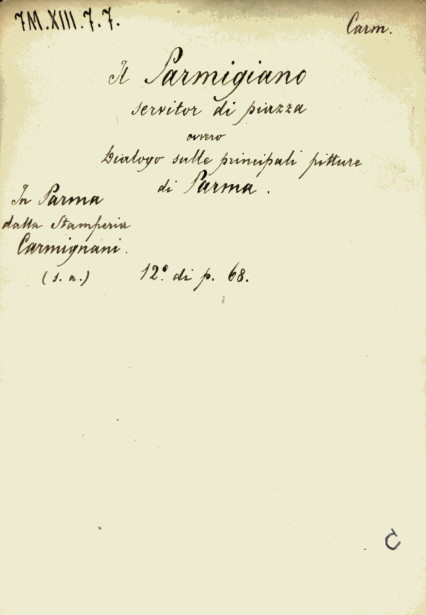 7M.XIII.7.7.
Carm.
Il Parmigiano
servitor di piazza
ovvero
Dialogo sulle principali pitture
di Parma.
In Parma
dalla Stamperia
Carmignani.
(s. a.) 12º di p. 68.
C